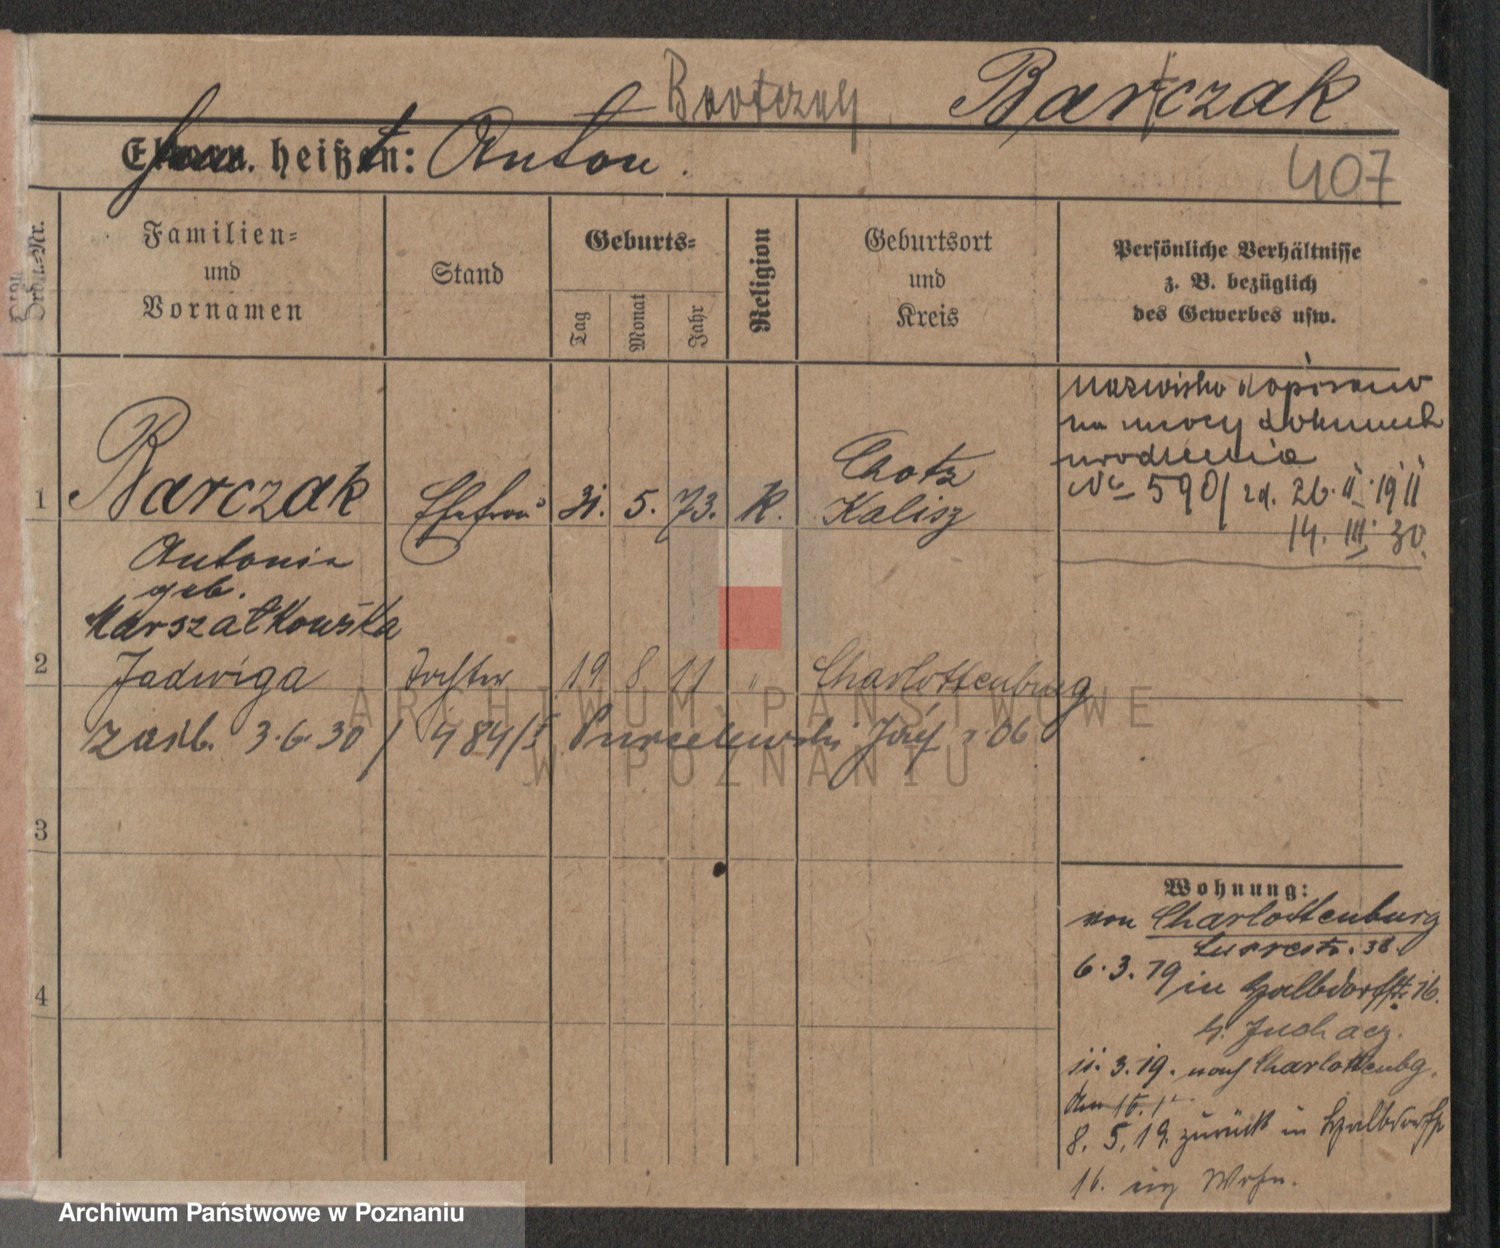 Bartczak
Barczak
heißt: Anton.
407
Ordn.-Nr.
Familien-
und
Vornamen
Stand
Geburts-
Tag
Monat
Jahr
Religion
Geburtsort
und
Kreis
Persönliche Verhältnisse
z. B. bezüglich
des Gewerbes usw.
nazwisko dopisano
na mocy dokument
urodzenia
No 590/ zd. 26.II.1911
14. III. 30.
1
Barczak
Ehefrau
31. 5. 73. K.
Chotz
Kalisz
Antonia
geb.
Marszałkowska
2
Jadwiga
Tochter
19 8 11 "
Charlottenburg
zaśl. 3.6.30 / 484/I
Józef 06
3
4
Wohnung:
von Charlottenburg
38.
6.3.19 in Halbdorfstr. 16.
b. Juchacz.
11.3.19. nach Charlottenbg.
8.5.19. zurück in Halbdorfstr
16. eig Wohn.
ARCHIWUM PAŃSTWOWE
W POZNANIU
Archiwum Państwowe w Poznaniu